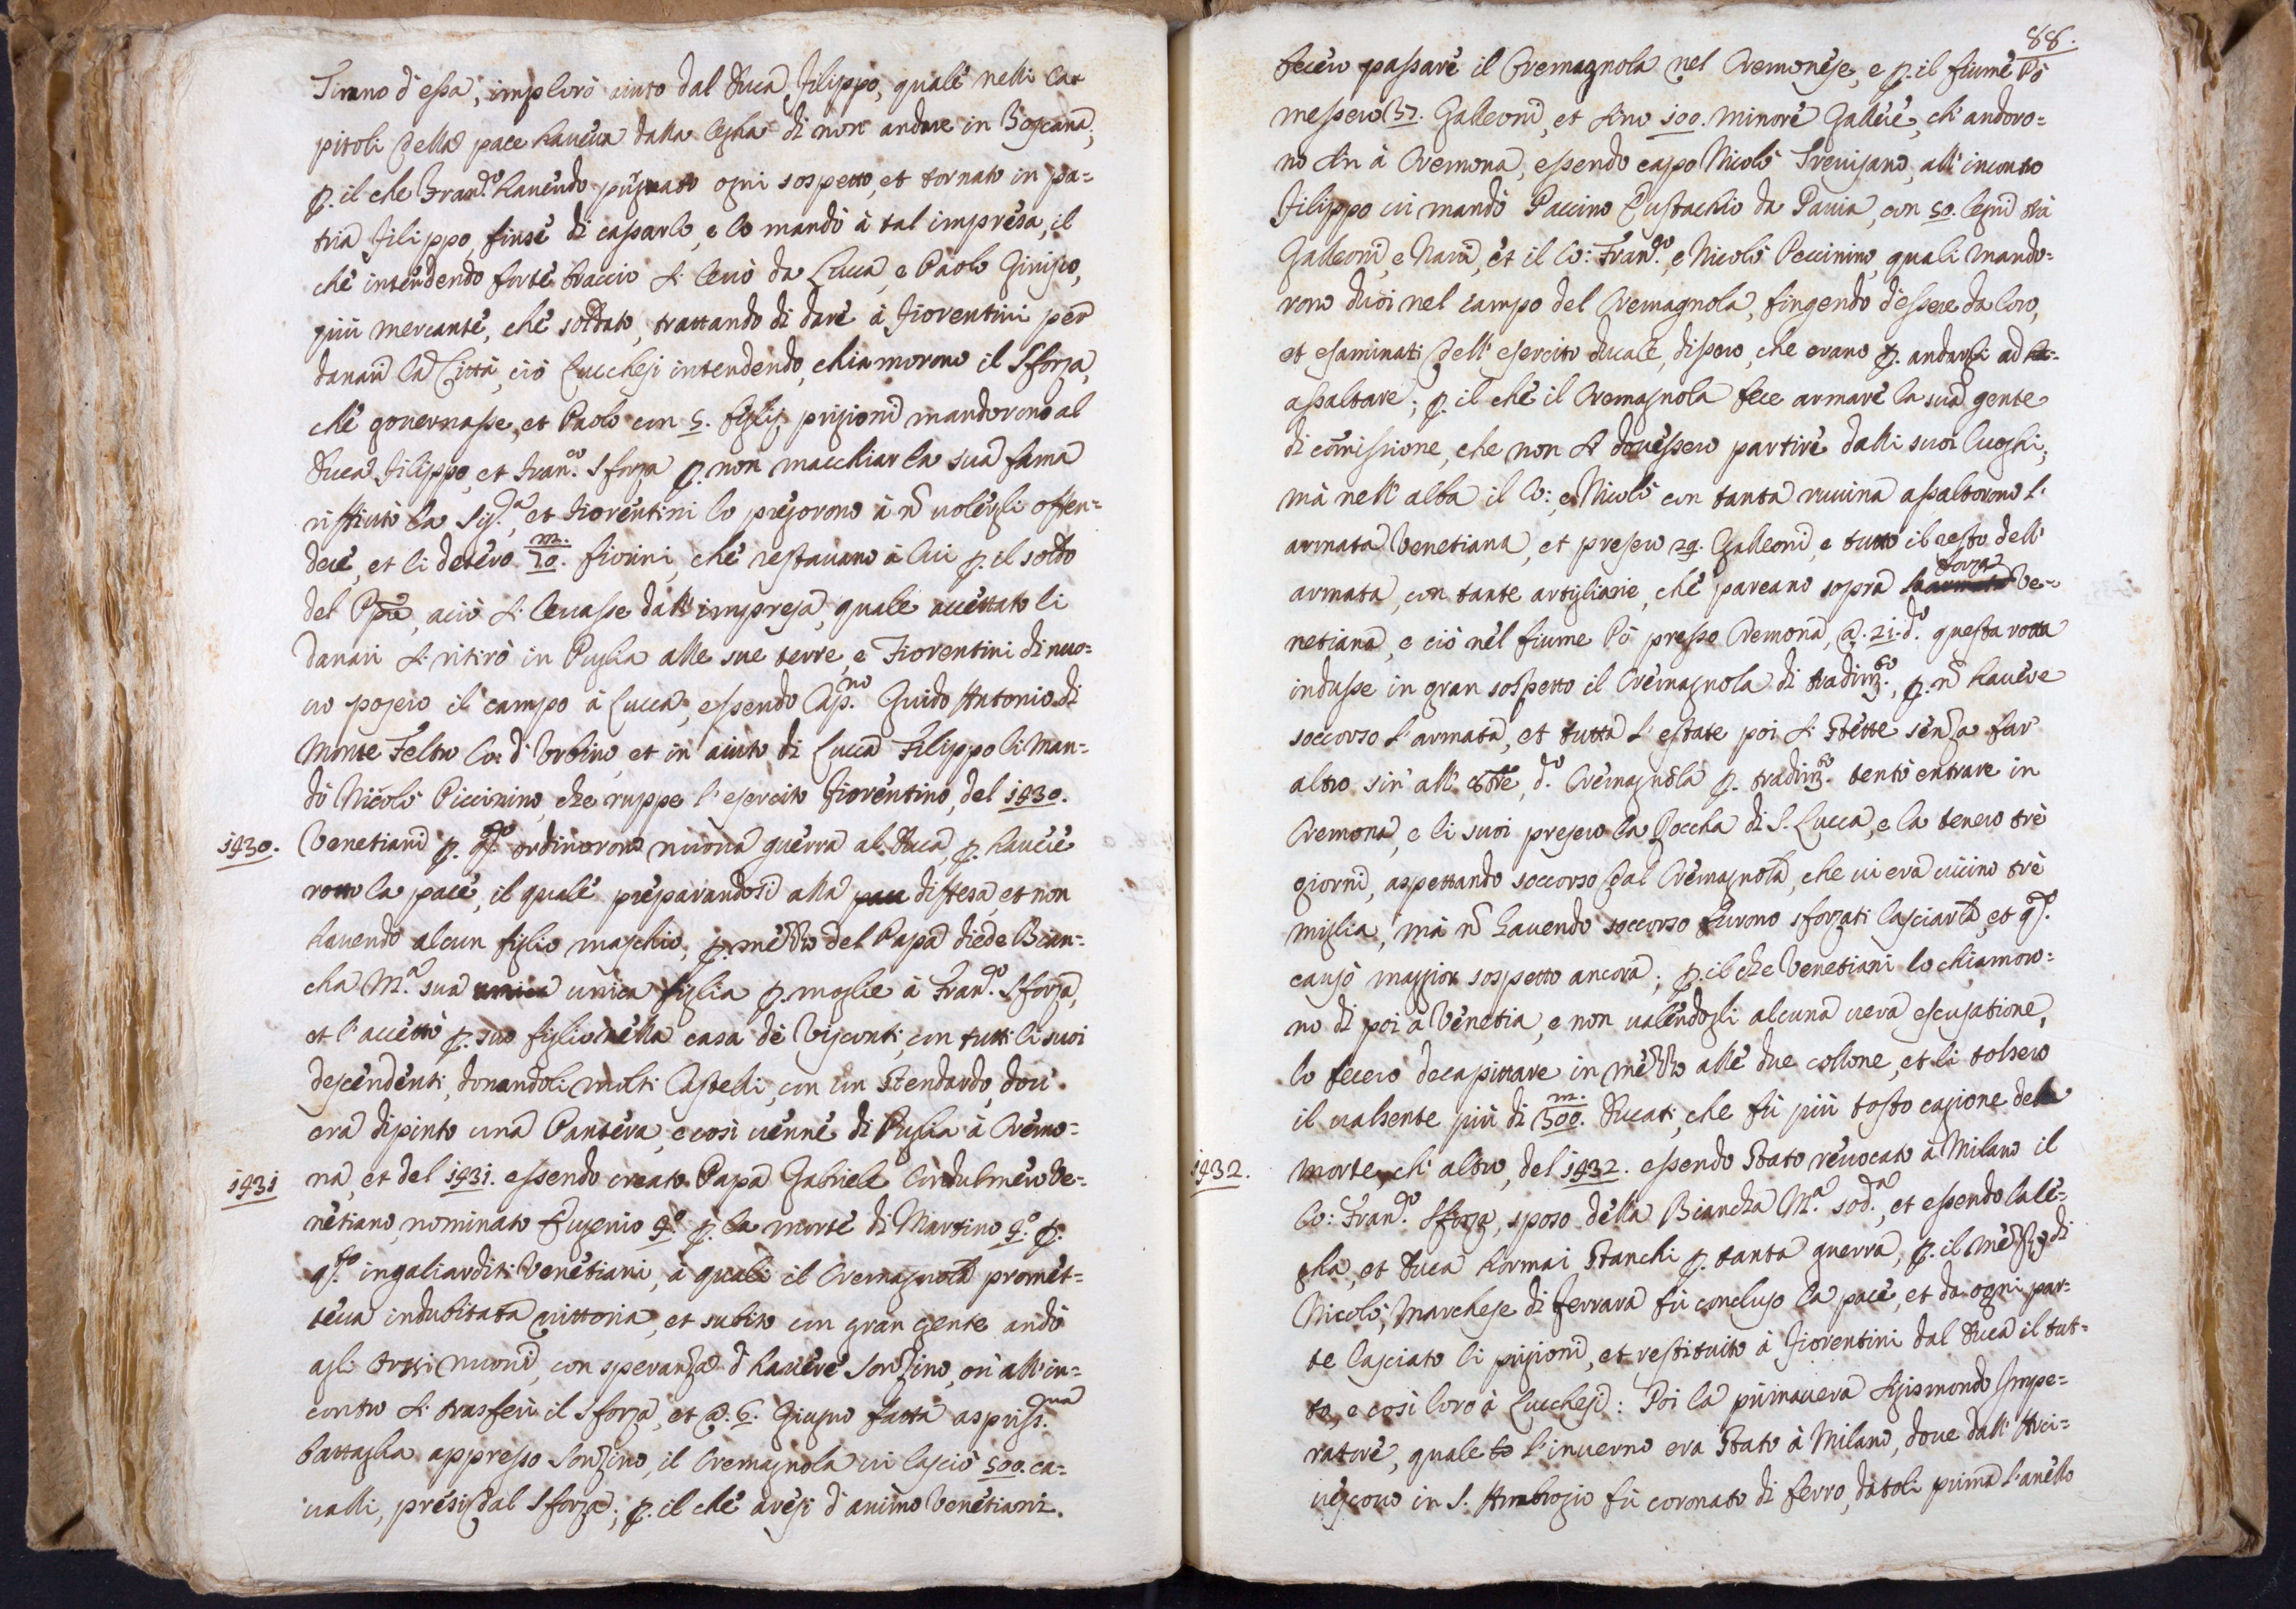 Tirano d'essa, implorò aiuto dal Duca Filippo, quale nelli Ca=
pitoli della pace haueua dalla legha di non andare in Toscana,
p. il che Fran.co hauendo purgato ogni sospetto, et tornato in pa=
tria Filippo, finse di cassarlo, e lo mandò à tal impresa, il
che intendendo forte braccio si leuò da Lucca, e Paolo Ginigio,
più mercante, che soldato, trattando di dare à Fiorentini per
danari la Città, ciò Lucchesi intendendo, chiamorono il Sforza,
che gouernasse, et Paolo con 5. figlij prigioni mandorono al
Duca Filippo, et Fran.co Sforza p. non macchiar la sua fama
riffiutò la Sig.a, et Fiorentini lo pregorono à nõ uolergli offen=
dere, et li detero 70.m fiorini, che restauano à lui p. il soldo
del Pre, aciò si leuasse dall'impresa, quale accettato li
danari si ritirò in Puglia alle sue terre, e Fiorentini di nuo=
uo posero il campo à Lucca, essendo Cap.no Guido Antonio di
Monte Feltro Co: d'Urbino, et in aiuto di Lucca Filippo li man=
dò Nicolò Piccinino, che ruppe l'esercito Fiorentino, del 1430.
1430. Venetiani p. q.sto ordinorono nuoua guerra al Duca, p. hauere
rotto la pace, il quale preparandosi alla pace diffesa, et non
hauendo alcun figlio maschio, p. mezzo del Papa diede Bian=
cha M.a sua unica unica figlia p. moglie à Fran.co Sforza,
et l'accettò p. suo figlio nella casa de Visconti, con tutti li suoi
descendenti, donandoli molti Castelli, con un Stendardo, dou'
era dipinto una Pantera, e così uenne di Puglia à Cremo=
1431 na, et del 1431. essendo creato Papa Gabriele Condulmero Ve=
netiano, nominato Eugenio 4.o p. la morte di Martino 4.o p.
q.sto ingaliarditi Venetiani, à quali il Cremagnola promet=
teua indubitata uittoria, et subito con gran gente andò
agli Orzi nuoui, con speranza d'hauere Sonzino, oũ all'in=
contro si trasferì il Sforza, et @. 6. Giugno fatta aspriss.ma
battaglia appresso Sonzino, il Cremagnola ui lasciò 500. ca=
ualli, presi dal Sforza; p. il che aresi d'animo Venetiani.
88.
fecero passare il Cremagnola nel Cremonese, e p. il fiume Pò
messero 37. Galleoni, et sino 100. minore Gallere, ch'andoro=
no sin à Cremona, essendo capo Nicolò Treuisano, all'incontro
Filippo ui mandò Paccino Eustachio da Pauia, con 50. legni trà
Galleoni, e Naui, et il Co: Fran.co, e Nicolò Peccinino, quali mando=
rono duoi nel campo del Cremagnola, fingendo d'essere da loro,
et esaminati dell'esercito ducale, dissero, che erano p. andarli ad
assaltare; p. il che il Cremagnola fece armare la sua gente
di cõmissione, che non si douessero partire dalli suoi luoghi,
mà nell'alba il Co: e Nicolò con tanta ruuina assaltorono l'
armata Venetiana, et presero 29. Galleoni, e tutto il resto dell'
armata, con tante artigliarie, che pareano sopra forza Ve=
netiana, e ciò nel fiume Pò presso Cremona, @. 21. d.o questa rotta
indusse in gran sospetto il Cremagnola di tradim.to, p. nõ hauere
soccorso l'armata, et tutta l'estate poi si stette senza far
altro sin'all'8bre, d.o Cremagnola p. tradim.to tentò entrare in
Cremona, e li suoi presero la Roccha di S. Lucca, e la tenero tre
giorni, aspettando soccorso dal Cremagnola, che ui era uicino tre
miglia, mà nõ hauendo soccorso furono sforzati lasciarla, et q.sto
causò maggior sospetto ancora; p. il che Venetiani lo chiamoro=
no di poi à Venetia, e non ualendogli alcuna uera escusatione,
lo fecero decapittare in mezzo alle due collone, et li tolsero
il ualsente più di 300.m Ducati, che fù più tosto cagione della
1432. morte, ch'altro, del 1432. essendo stato reuocato à Milano il
Co: Fran.co Sforza, sposo della Biancha M.a sod.a, et essendo la le=
gha, et Duca hormai stanchi p. tanta guerra, p. il mezzo di
Nicolò, Marchese di Ferrara fù concluso la pace, et da ogni par=
te lasciato li prigioni, et restituito à Fiorentini dal Duca il tut=
to, e così loro à Lucchesi: Poi la primauera Sigismondo Impe=
ratore, quale to l'inuerno era stato à Milano, doue dall'Arci=
uescouo in S. Ambrogio fù coronato di ferro, datoli prima l'anello